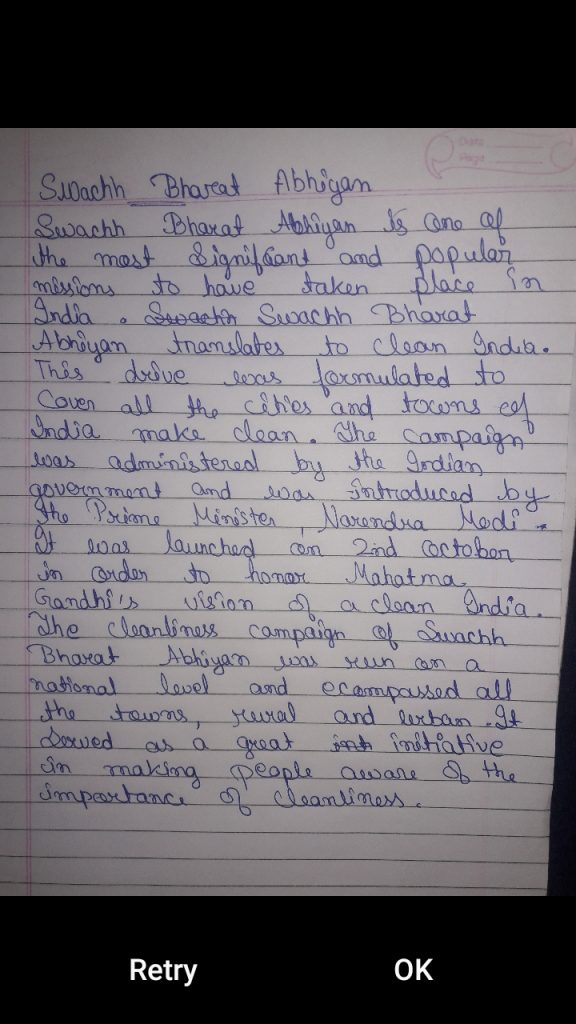 Date
Page
Swachh Bharat Abhiyan
Swachh Bharat Abhiyan is one of
the most significant and popular
missions to have taken place in
India. Swachh Swachh Bharat
Abhiyan translates to clean India.
This drive was formulated to
Cover all the cities and towns of
India make clean. The campaign
was administered by the Indian
government and was introduced by
the Prime Minister, Narendra Modi.
It was launched on 2nd october
in order to honor Mahatma
Gandhi's vision of a clean India.
The cleanliness campaign of Swachh
Bharat Abhiyan was run on a
national level and ecompassed all
the towns, rural and urban. It
Served as a great init initiative
in making people aware of the
importance of cleanliness.
Retry OK